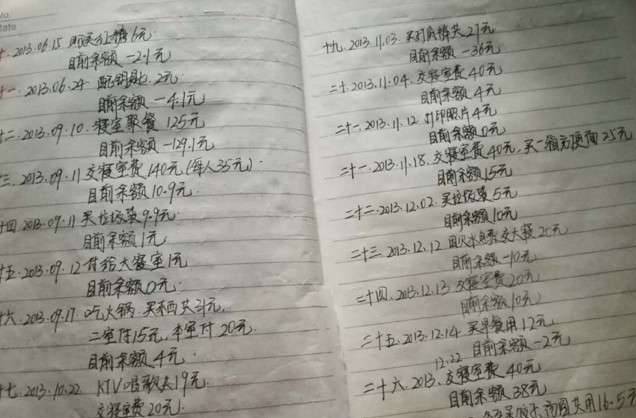 2013.06.15 6元
目前余额 -2.1元
2013.06.24 配钥匙 2元
目前余额 -4.1元
十二. 2013.09.10. 寝室聚餐 125元
目前余额 -129.1元
三. 2013.09.11 交寝室费 140元 (每人35元).
目前余额 10.9元.
十四 2013.09.11 买垃圾袋 9.9元.
目前余额 1元.
十五. 2013.09.12 付给大寝室 1元
目前余额 0元.
十六. 2013.09.17. 吃火锅. 买东西共 元,
二室付15元, 本室付 20元.
目前余额 4元.
十七. 2013.10.22. KTV唱歌 19元.
交寝室费20元.
十九. 2013.11.03. 共21元
目前余额 -36元
二十. 2013.11.04. 交寝室费40元
目前余额 4元
二十一. 2013.11.12. 打印照片 4元
目前余额 0元
二十一. 2013.11.18. 交寝室费 40元, 买一箱方便面 25元
目前余额 15元
二十二. 2013.12.02. 买垃圾袋 5元
目前余额 10元
二十三. 2013.12.12 20元
目前余额 -10元.
二十四. 2013.12.13 交寝室费20元
目前余额 10元
二十五. 2013.12.14. 买早餐用12元
12.22 目前余额 -2元
二十六. 2013. 交寝室费 40元
目前余额 38元
共用16.5元